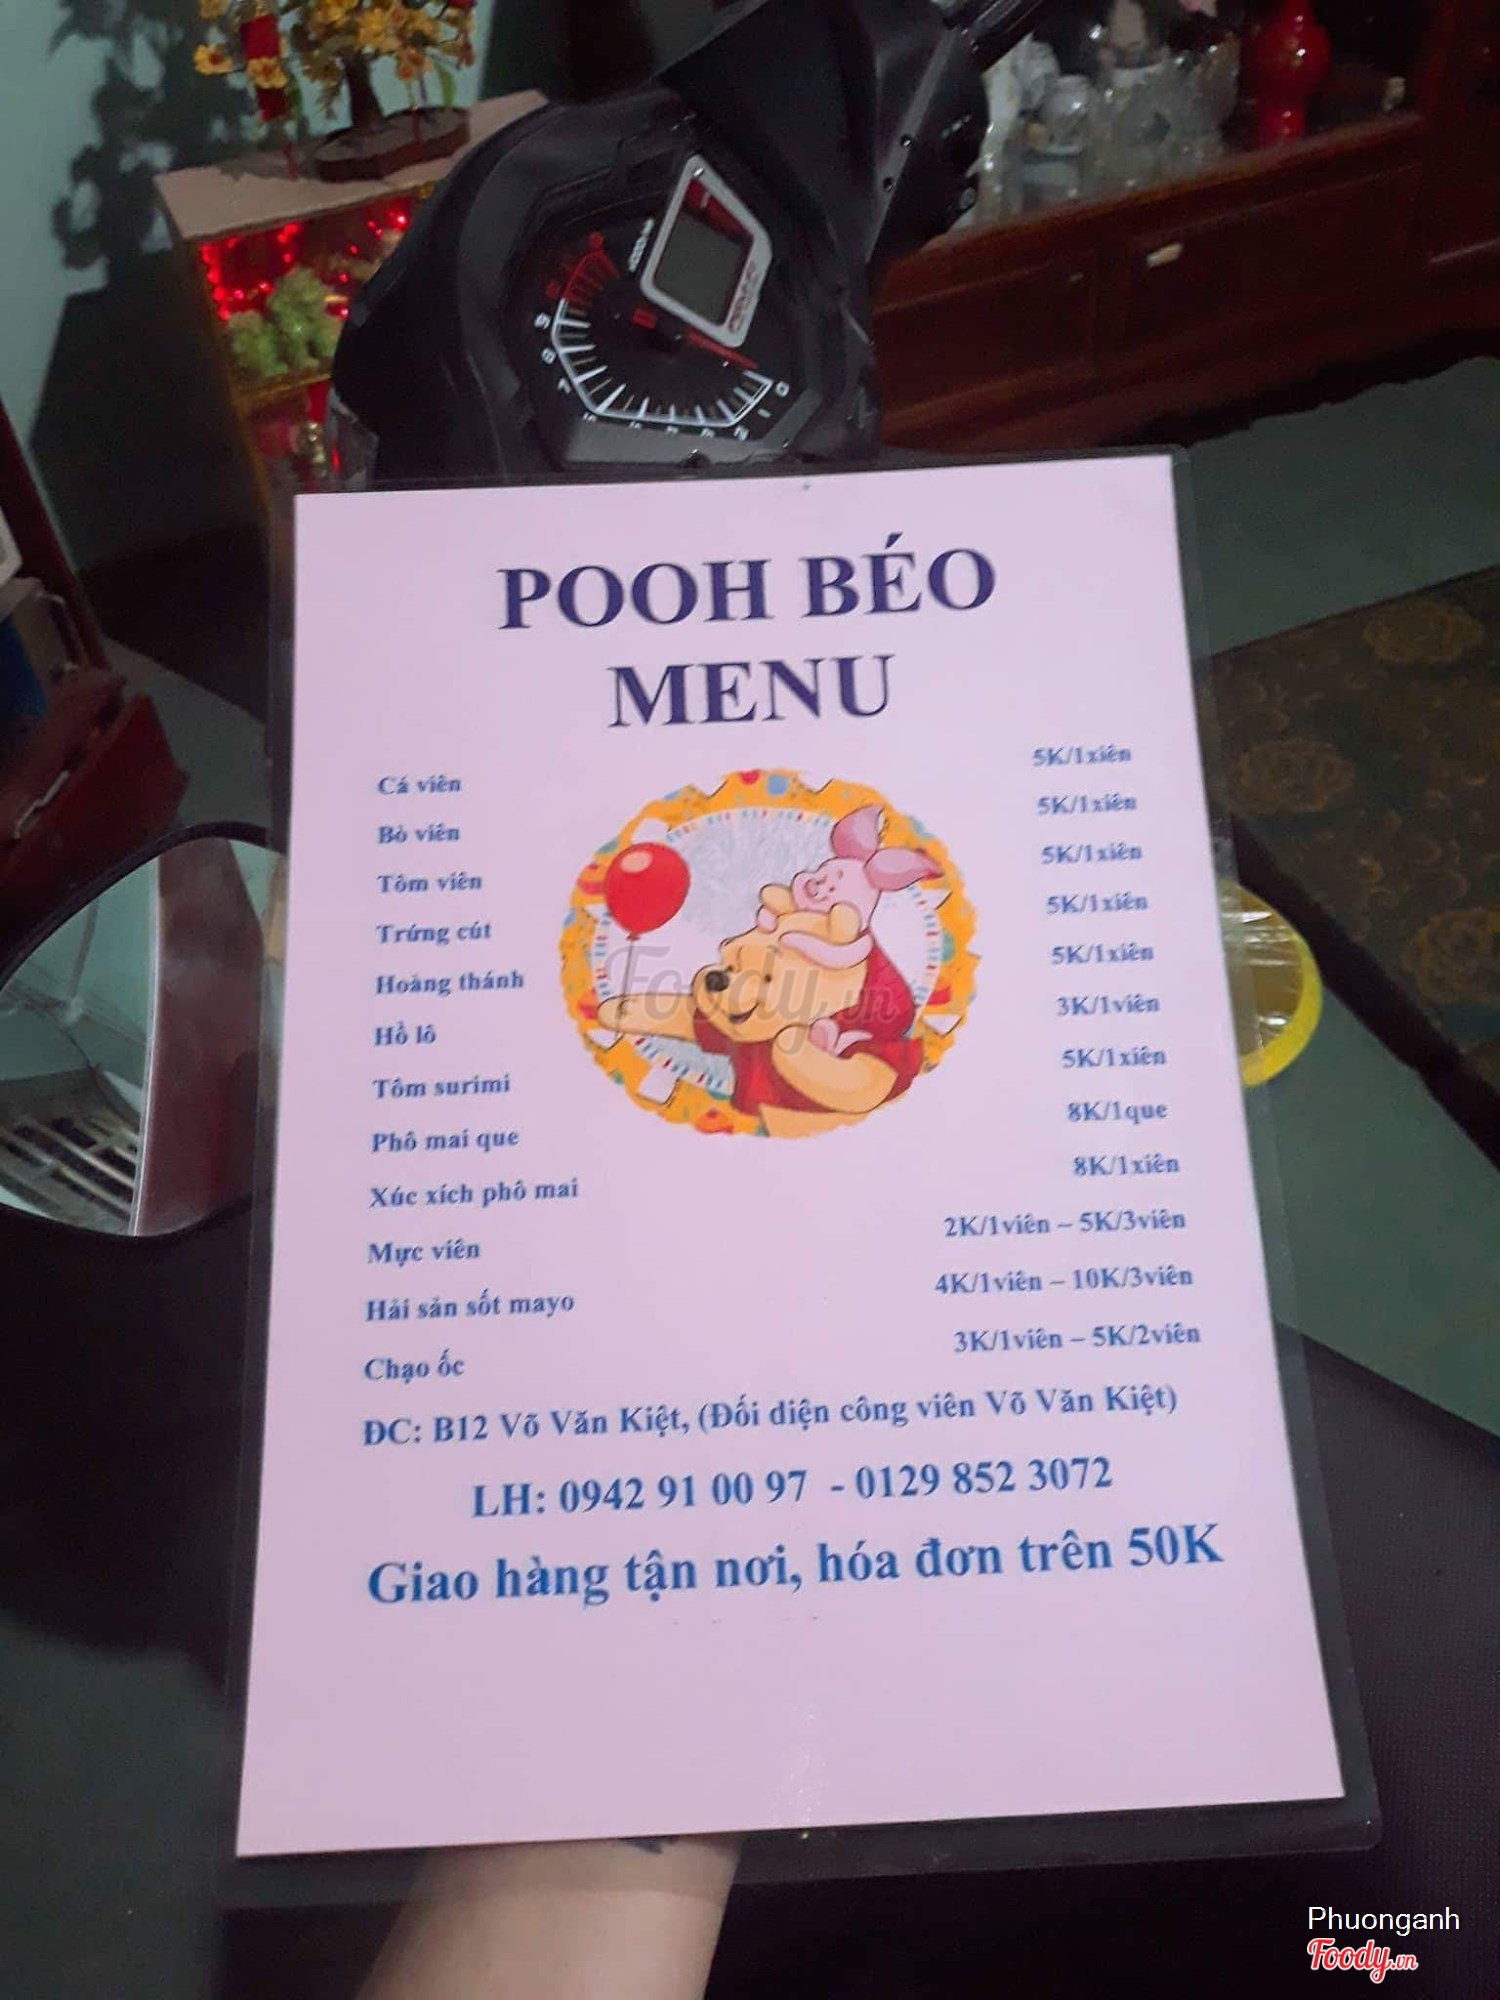 POOH BÉO
MENU
Cá viên 5K/1xiên
Bò viên 5K/1xiên
Tôm viên 5K/1xiên
Trứng cút 5K/1xiên
Hoàng thánh 5K/1xiên
Hồ lô 3K/1viên
Tôm surimi 5K/1xiên
Phô mai que 8K/1que
Xúc xích phô mai 8K/1xiên
Mực viên 2K/1viên – 5K/3viên
Hải sản sốt mayo 4K/1viên – 10K/3viên
Chạo ốc 3K/1viên – 5K/2viên
ĐC: B12 Võ Văn Kiệt, (Đối diện công viên Võ Văn Kiệt)
LH: 0942 91 00 97 - 0129 852 3072
Giao hàng tận nơi, hóa đơn trên 50K
Foody.vn
Phuonganh
Foody.vn